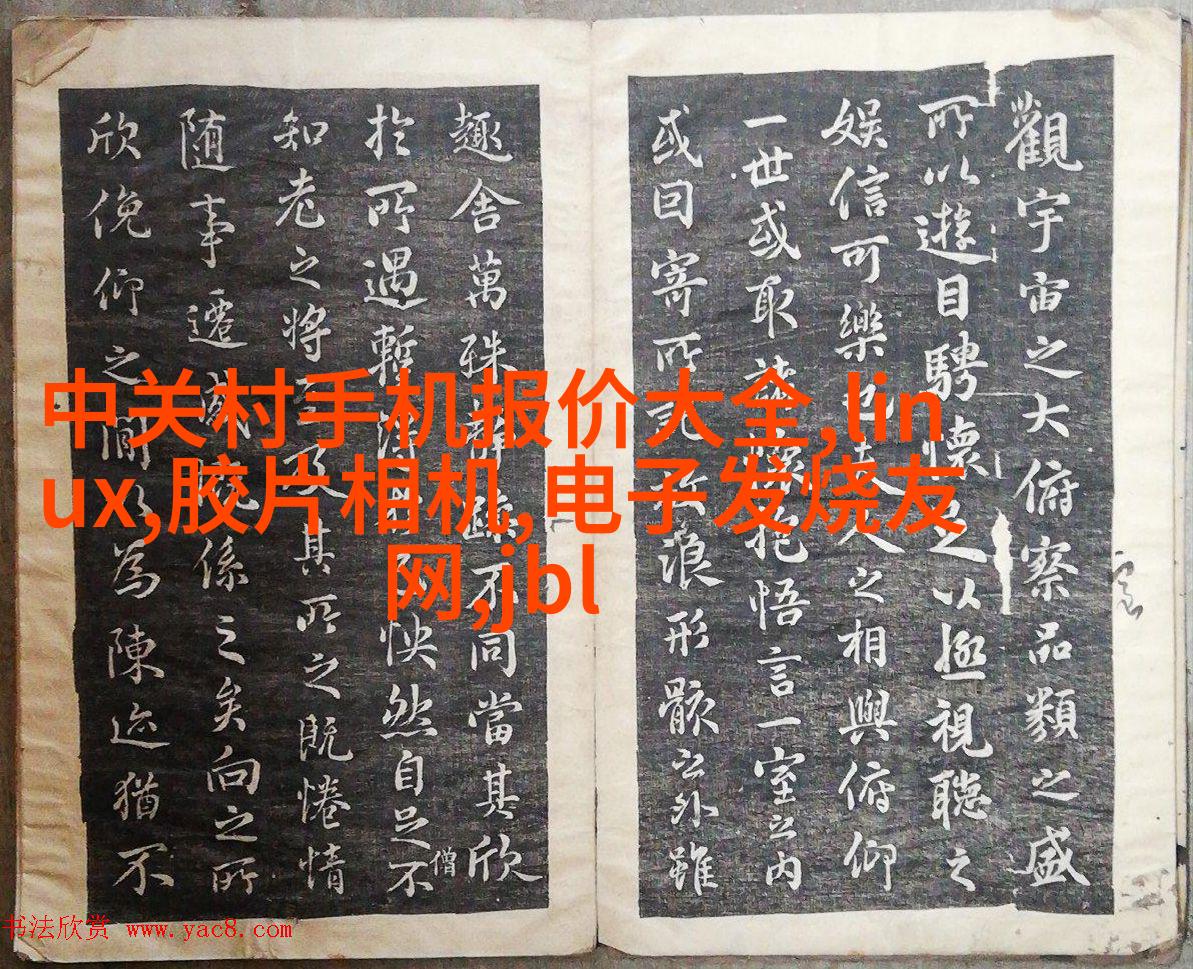 觀宇宙之大俯察品類之盛
所以遊目騁懷足以極視聽之
娛信可樂也夫人之相與俯仰
一世或取諸懷抱悟言一室之內
或因寄所託放浪形骸之外雖
趣舍萬殊靜躁不同當其欣
僧
於所遇暫得於己怏然自足不
知老之將至及其所之既惓情
隨事遷感慨係之矣向之所
欣俛仰之閒以為陳迹猶不
中关村手机报价大全,lin
ux,胶片相机,电子发烧友
网,jbl
书法欣赏 www.yac8.com